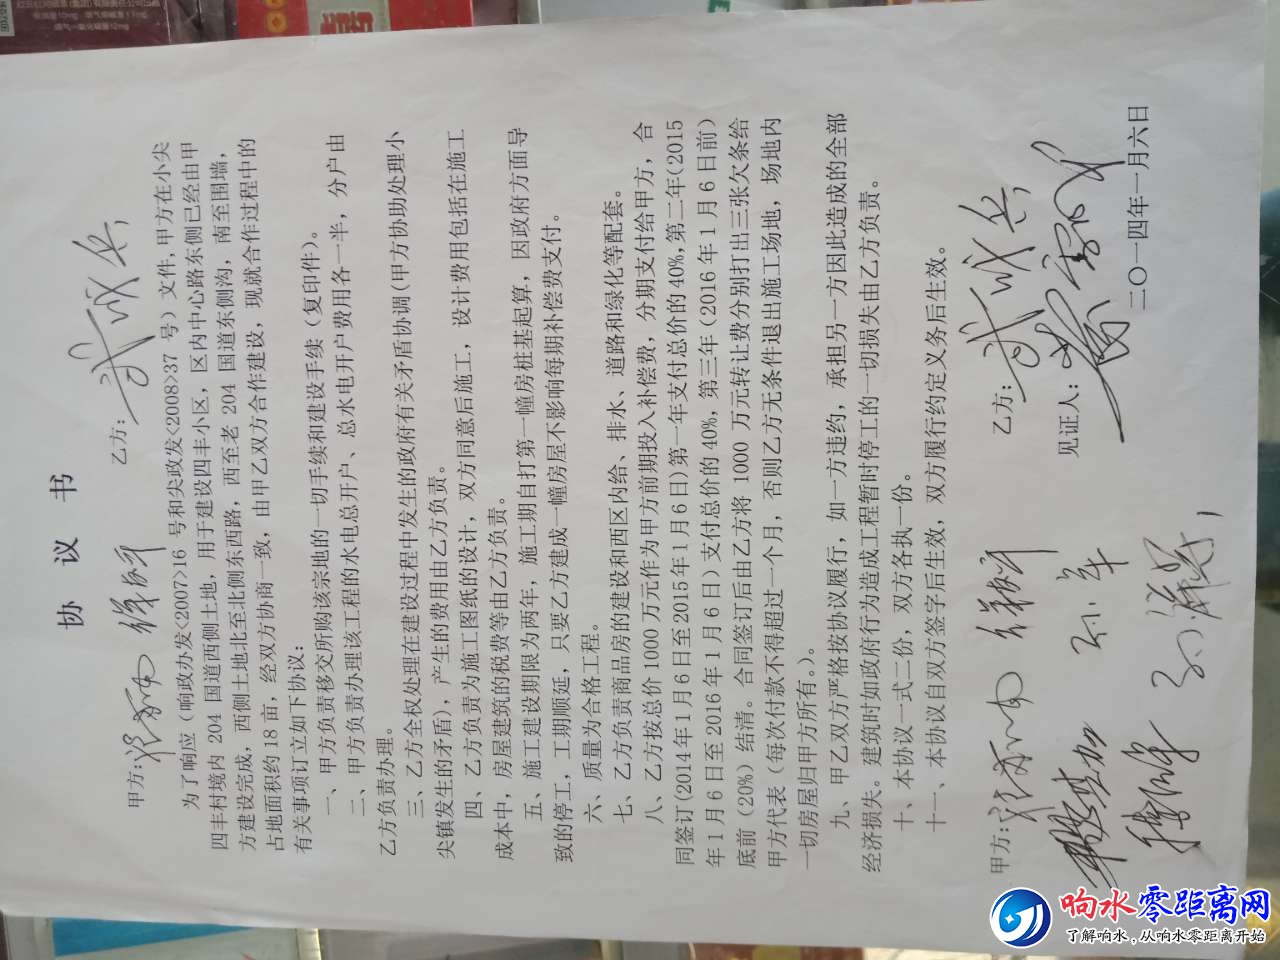 协 议 书
甲方: 乙方: 武成兵
为了响应（响政办发<2007>16 号和尖政发<2008>37 号）文件，甲方在小尖
四丰村境内 204 国道西侧土地，用于建设四丰小区，区内中心路东侧已经由甲
方建设完成，西侧土地北至北侧东西路，西至老 204 国道东侧沟，南至围墙，
占地面积约 18 亩，经双方协商一致，由甲乙双方合作建设，现就合作过程中的
有关事项订立如下协议：
一、甲方负责移交所购该宗地的一切手续和建设手续（复印件）。
二、甲方负责办理该工程的水电总开户、总水电开户费用各一半，分户由
乙方负责办理。
三、乙方全权处理在建设过程中发生的政府有关矛盾协调(甲方协助处理小
尖镇发生的矛盾)，产生的费用由乙方负责。
四、乙方负责为施工图纸的设计，双方同意后施工，设计费用包括在施工
成本中，房屋建筑的税费等由乙方负责。
五、施工建设期限为两年，施工期自打第一幢房桩基起算，因政府方面导
致的停工，工期顺延，只要乙方建成一幢房屋不影响每期补偿费支付。
六、质量为合格工程。
七、乙方负责商品房的建设和西区内给、排水、道路和绿化等配套。
八、乙方按总价 1000 万元作为甲方前期投入补偿费，分期支付给甲方，合
同签订(2014年1月6日至2015年1月6日)第一年支付总价的40%,第二年(2015
年1月6日至2016年1月6日)支付总价的40%,第三年(2016年1月6日前)
底前（20%）结清。合同签订后由乙方将 1000 万元转让费分别打出三张欠条给
甲方代表（每次付款不得超过一个月，否则乙方无条件退出施工场地，场地内
一切房屋归甲方所有。）。
九、甲乙双方严格按协议履行，如一方违约，承担另一方因此造成的全部
经济损失。建筑时如政府行为造成工程暂时停工的一切损失由乙方负责。
十、本协议一式二份，双方各执一份。
十一、本协议自双方签字后生效，双方履行约定义务后生效。
甲方: 乙方: 武成兵
见证人:
二〇一四年一月六日
响水零距离网
了解响水，从响水零距离开始